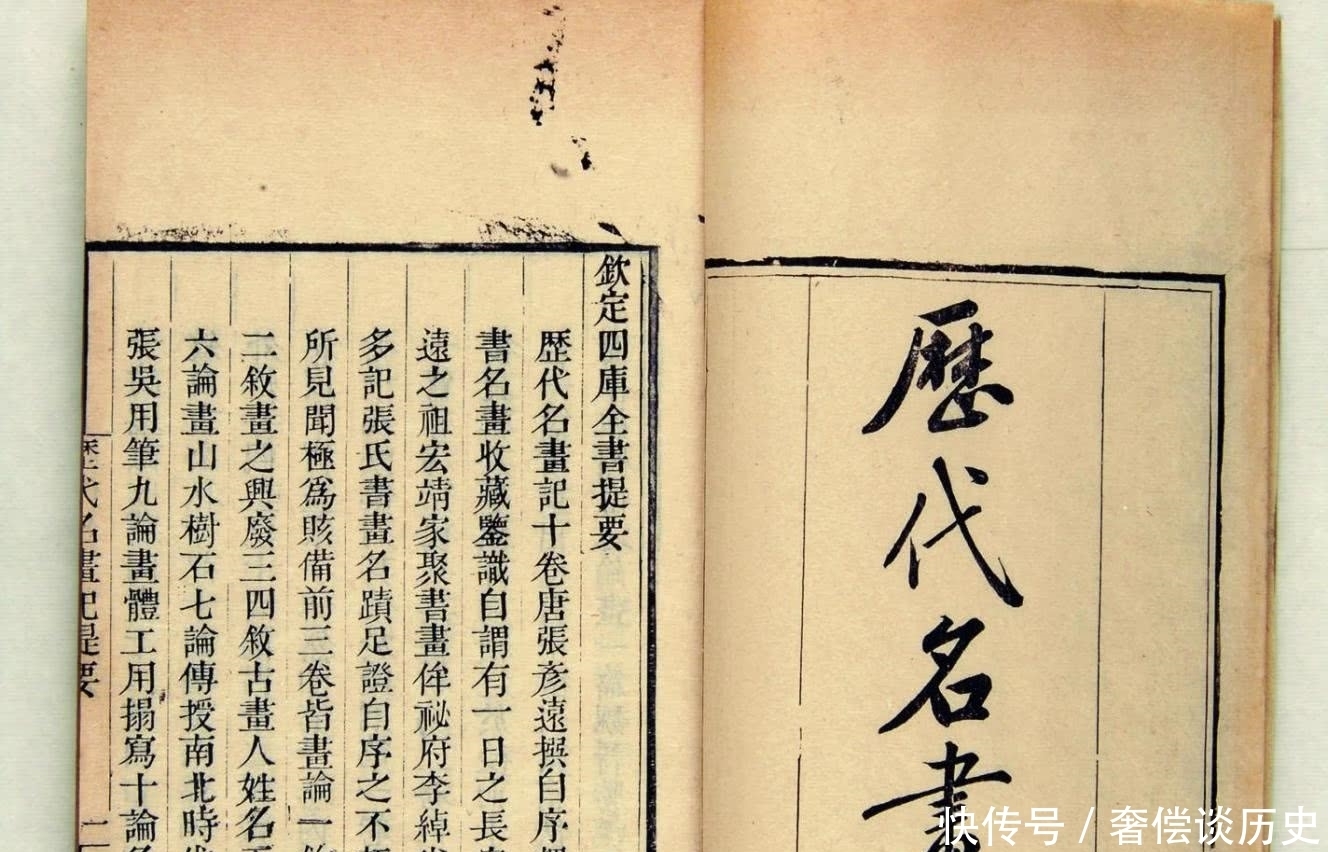 歷代名畫
欽定四庫全書提要
歷代名畫記十卷唐張彥遠撰自序
書名畫收藏鑒識自謂有一日之長
遠之祖宏靖家聚書畫侔祕府李綽
多記張氏書畫名蹟足證自序之不
所見聞極爲賅備前三卷皆畫論一
二敘畫之興廢三四敘古畫人姓名
六論畫山水樹石七論傳授南北時
張吳用筆九論畫體工用搨寫十論
歷代名畫記提要
快传号/奢偿谈历史